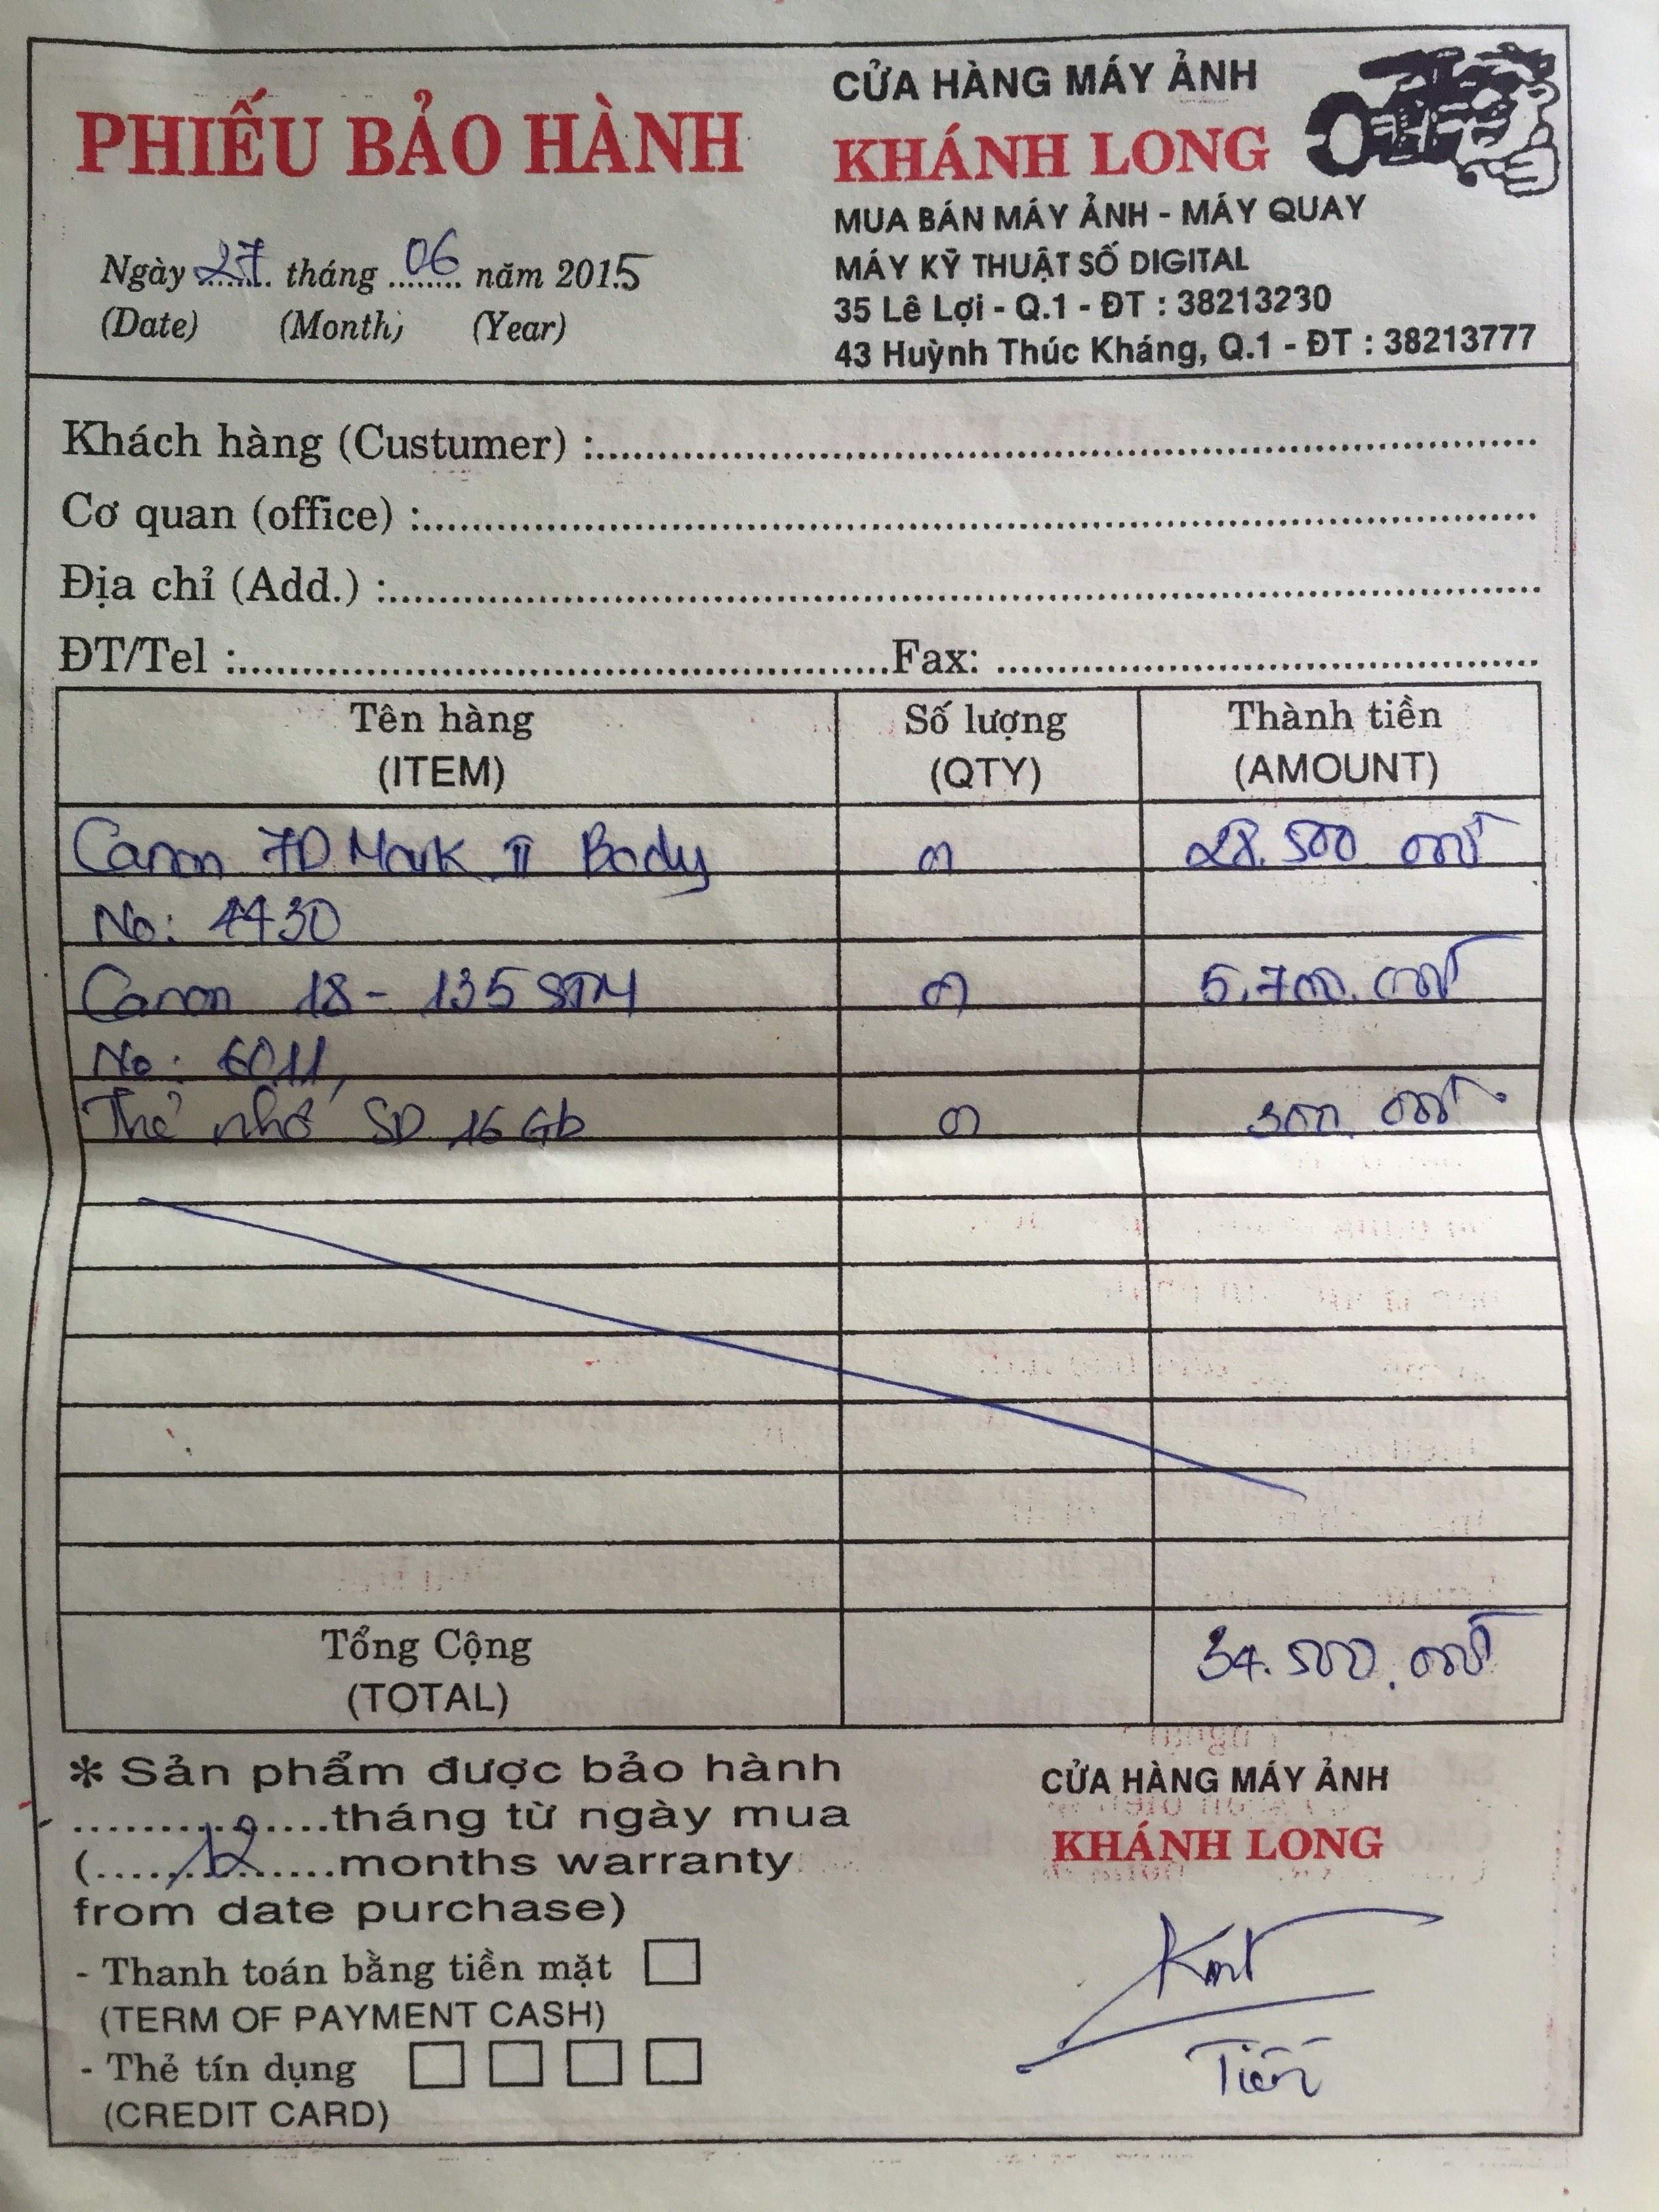 PHIẾU BẢO HÀNH
Ngày 27 tháng 06 năm 2015
(Date) (Month) (Year)
CỬA HÀNG MÁY ẢNH
KHÁNH LONG
MUA BÁN MÁY ẢNH - MÁY QUAY
MÁY KỸ THUẬT SỐ DIGITAL
35 Lê Lợi - Q.1 - ĐT : 38213230
43 Huỳnh Thúc Kháng, Q.1 - ĐT : 38213777
Khách hàng (Custumer) :
Cơ quan (office) :
Địa chỉ (Add.) :
ĐT/Tel : Fax:
Tên hàng Số lượng Thành tiền
(ITEM) (QTY) (AMOUNT)
Canon 7D Mark II Body 01 28.500.000đ
No: 4430
Canon 18-135 STM 01 5.700.000đ
No: 6011,
Thẻ nhớ SD 16Gb 01 300.000đ
Tổng Cộng 34.500.000đ
(TOTAL)
* Sản phẩm được bảo hành
tháng từ ngày mua
(12 months warranty
from date purchase)
- Thanh toán bằng tiền mặt
(TERM OF PAYMENT CASH)
- Thẻ tín dụng
(CREDIT CARD)
CỬA HÀNG MÁY ẢNH
KHÁNH LONG